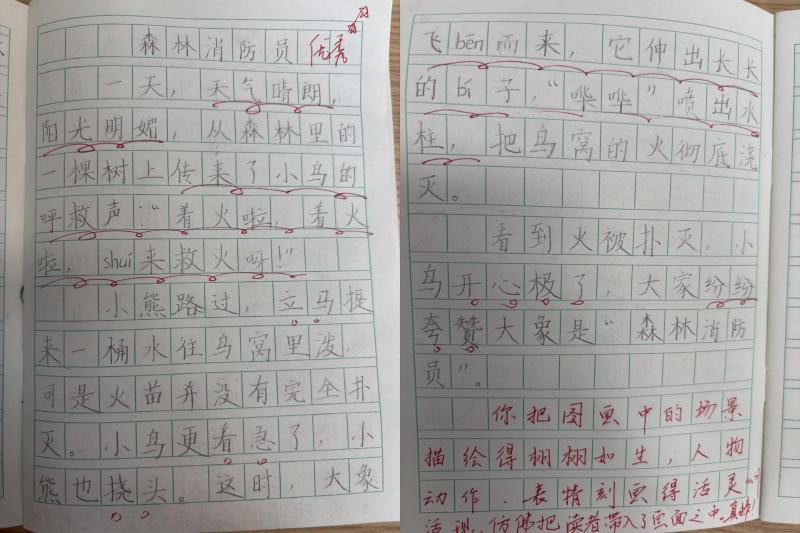 森林消防员 优秀
一天，天气晴朗，
阳光明媚，从森林里的
一棵树上传来了小鸟的
呼救声：“着火啦，着火
啦，shuí来救火呀！”
小熊路过，立马提
来一桶水往鸟窝里泼，
可是火苗并没有完全扑
灭。小鸟更着急了，小
熊也挠头。这时，大象
飞bēn而来，它伸出长长
的bí子，“哗哗”喷出水
柱，把鸟窝的火彻底浇
灭。
看到火被扑灭，小
鸟开心极了，大家纷纷
夸赞大象是“森林消防
员”。
你把图画中的场景
描绘得栩栩如生，人物
动作、表情刻画得活灵
活现，仿佛把读者带入了画面之中。真棒！